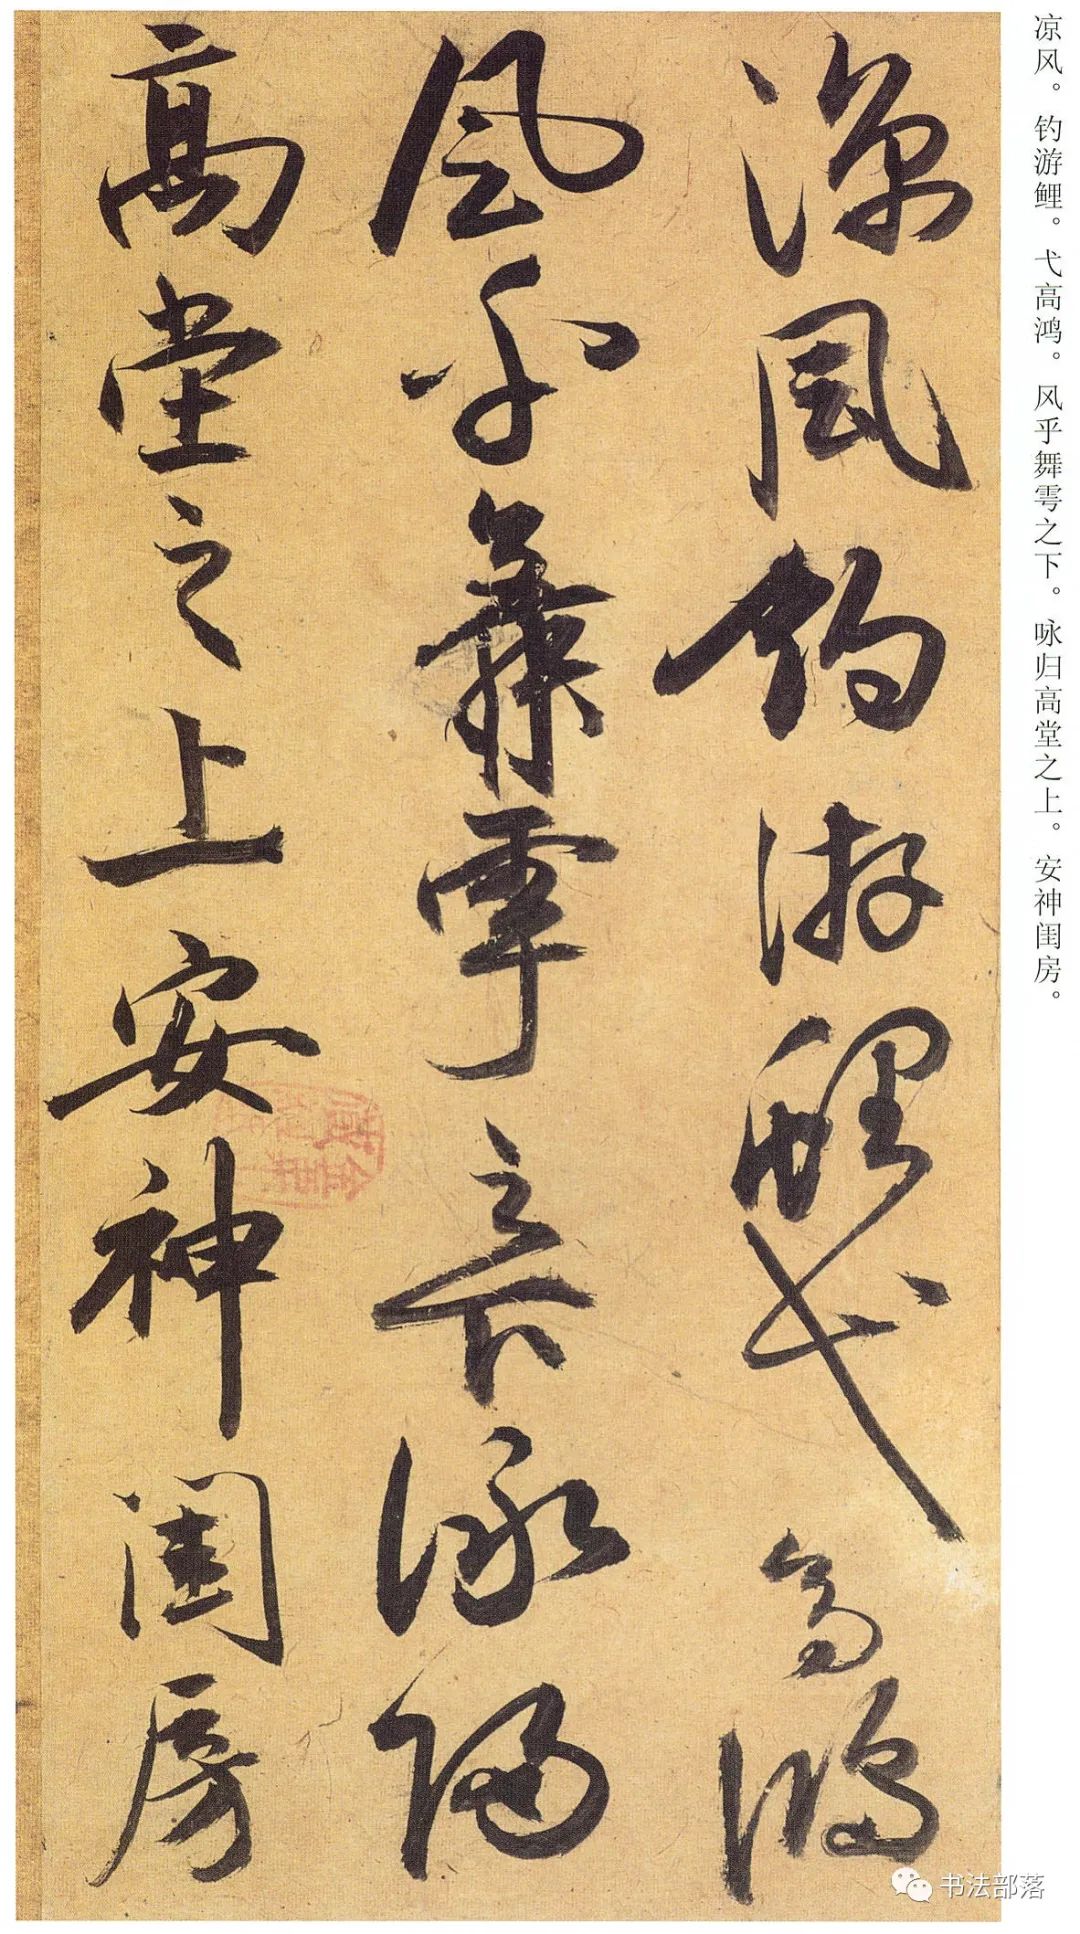 凉风。钓游鲤。弋高鸿。风乎舞雩之下。咏归高堂之上。安神闺房。
涼風釣游鯉弋高鴻
風乎舞雩之下詠歸
高堂之上安神閨房
书法部落